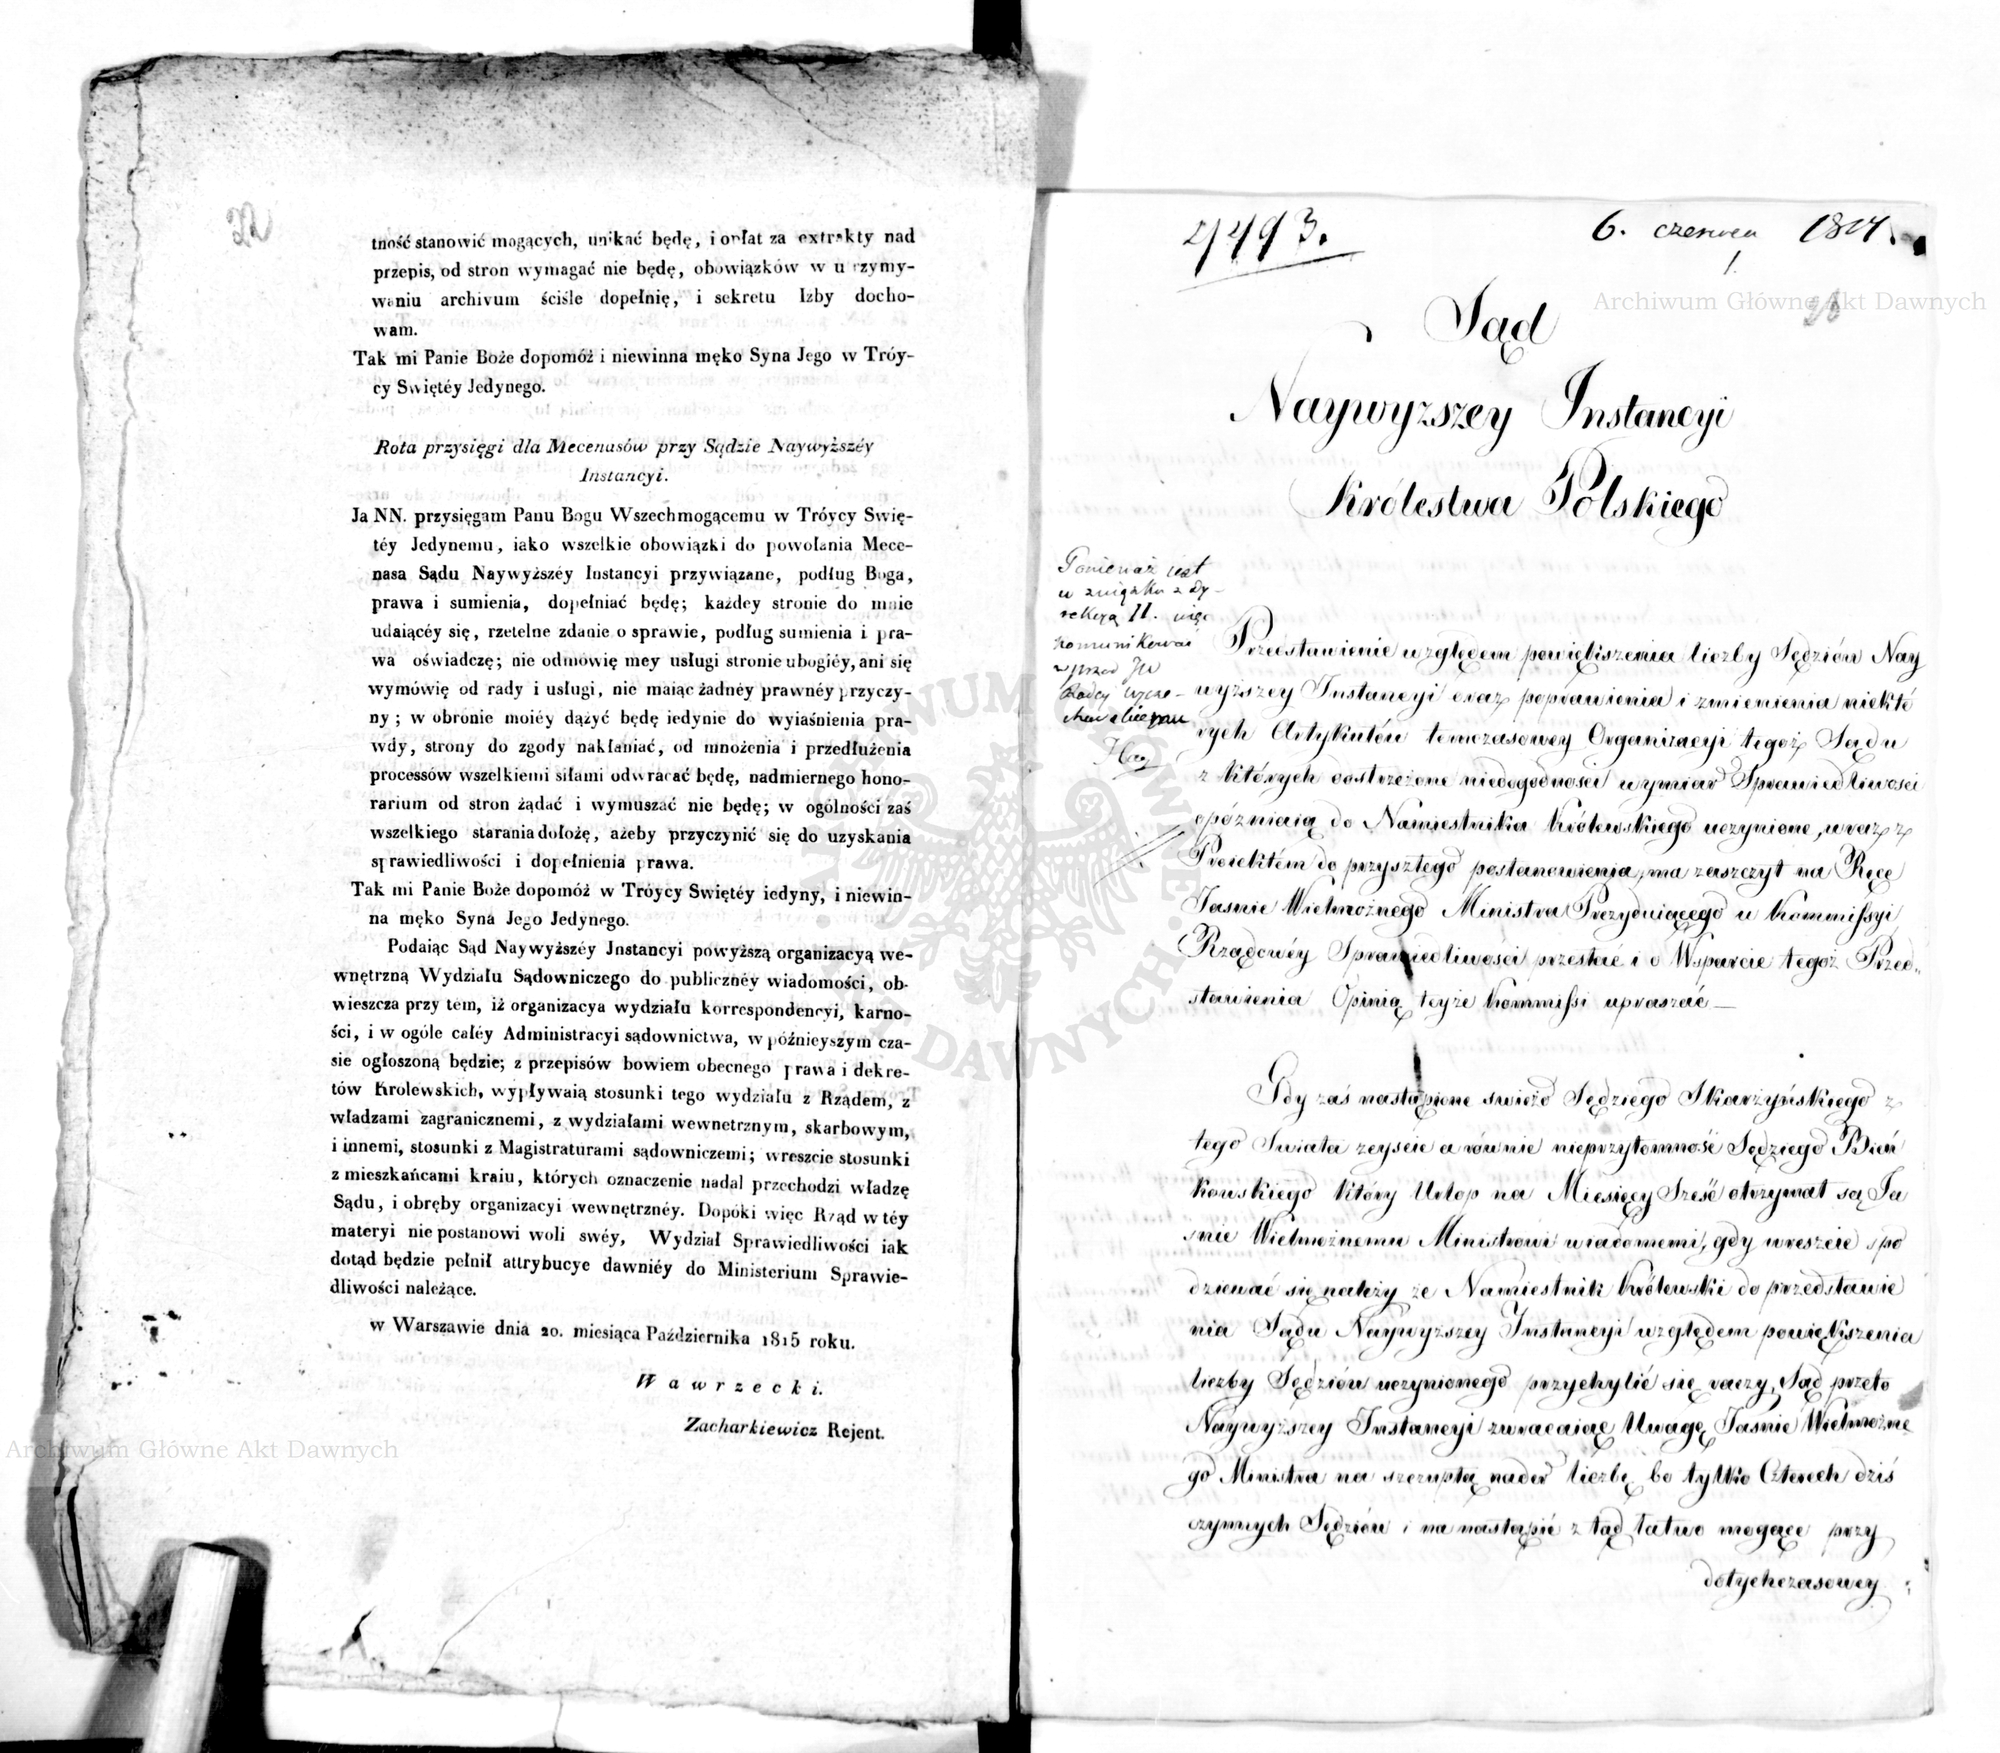 22
tność stanowić mogących, unikać będę, i opłat za extrakty nad
przepis, od stron wymagać nie będę, obowiązków w u rzymy-
waniu archivum ściśle dopełnię, i sekretu Izby docho-
wam.
Tak mi Panie Boże dopomóż i niewinna męko Syna Jego w Tróy-
cy Swiętéy Jedynego.
Rota przysięgi dla Mecenasów przy Sądzie Naywyższéy
Instancyi.
Ja NN. przysięgam Panu Bogu Wszechmogącemu w Tróycy Swię-
téy Jedynemu, iako wszelkie obowiązki do powołania Mece-
nasa Sądu Naywyższéy Instancyi przywiązane, podług Boga,
prawa i sumienia, dopełniać będę; każdey stronie do mnie
udaiącéy się, rzetelne zdanie o sprawie, podług sumienia i pra-
wa oświadczę; nie odmówię mey usługi stronie ubogiéy, ani się
wymówię od rady i usługi, nie maiąc żadnéy prawnéy przyczy-
ny; w obronie moiéy dążyć będę iedynie do wyiaśnienia pra-
wdy, strony do zgody nakłaniać, od mnożenia i przedłużenia
processów wszelkiemi siłami odwracać będę, nadmiernego hono-
rarium od stron żądać i wymuszać nie będę; w ogólności zaś
wszelkiego starania dołożę, ażeby przyczynić się do uzyskania
sprawiedliwości i dopełnienia prawa.
Tak mi Panie Boże dopomóż w Tróycy Swiętéy iedyny, i niewin-
na męko Syna Jego Jedynego.
Podaiąc Sąd Naywyższéy Jnstancyi powyższą organizacyą we-
wnętrzną Wydziału Sądowniczego do publicznéy wiadomości, ob-
wieszcza przy tém, iż organizacya wydziału korrespondencyi, karno-
ści, i w ogóle całéy Administracyi sądownictwa, w późnieyszym cza-
sie ogłoszoną będzie; z przepisów bowiem obecnego prawa i dekre-
tów Krolewskich, wypływaią stosunki tego wydziału z Rządem, z
władzami zagranicznemi, z wydziałami wewnetrznym, skarbowym,
i innemi, stosunki z Magistraturami sądowniczemi; wreszcie stosunki
z mieszkańcami kraiu, których oznaczenie nadal przechodzi władzę
Sądu, i obręby organizacyi wewnętrznéy. Dopóki więc Rząd w téy
materyi nie postanowi woli swéy, Wydział Sprawiedliwości iak
dotąd będzie pełnił attrybucye dawniéy do Ministerium Sprawie-
dliwości należące.
w Warszawie dnia 20. miesiąca Października 1815 roku.
Wawrzecki.
Zacharkiewicz Rejent.
Archiwum Główne Akt Dawnych
4493.
6. czerwca
Archiwum Główne Akt Dawnych
Sąd
Naywyzszey Instancyi
Królestwa Polskiego
Ponieważ iest
w związku z Dy-
rekcyą II. więc
komunikować
wprzod JW
Radcy
Przedstawienie względem powiększenia liczby Sędziów Nay
wyższey Instancyi oraz poprawienia i zmienienia niektó
rych Artykułów temczasowey Organizacyi tegoż Sądu
z których dostrzeżone niedogodności wymiar Sprawiedliwości
opózniaią do Namiestnika Królewskiego uczynione, wraz z
Proiektem do przyszłego postanowienia, ma zaszczyt na Ręce
Jasnie Wielmożnego Ministra Prezyduiącego w Kommissyi
Rządowéy Sprawiedliwości przesłać i o Wsparcie tegoż Przed-
stawienia Opinią teyże Kommissi upraszać —
Gdy zaś nastąpione swieżo Sędziego Skarżyńskiego z
tego Swiata zeyscie a równie nieprzytomność Sędziego Bień
kowskiego który Urlop na Miesięcy Sześć otrzymał są Ja
śnie Wielmożnemu Ministrowi wiadomemi, gdy wreszcie spo
dziewać się należy że Namiestnik Królewski do przedstawie
nia Sądu Naywyższey Instancyi względem powiększenia
liczby Sędziów uczynionego przychylić się raczy, Sąd przeto
Naywyższey Instancyi zwracaiąc Uwagę Jaśnie Wielmożne
go Ministra na szczupłą nader liczbę bo tylko Czterech dziś
czynnych Sędziów i na nastąpić z tąd łatwo mogące przy
dotychczasowey
ARCHIWUM GŁÓWNE AKT DAWNYCH